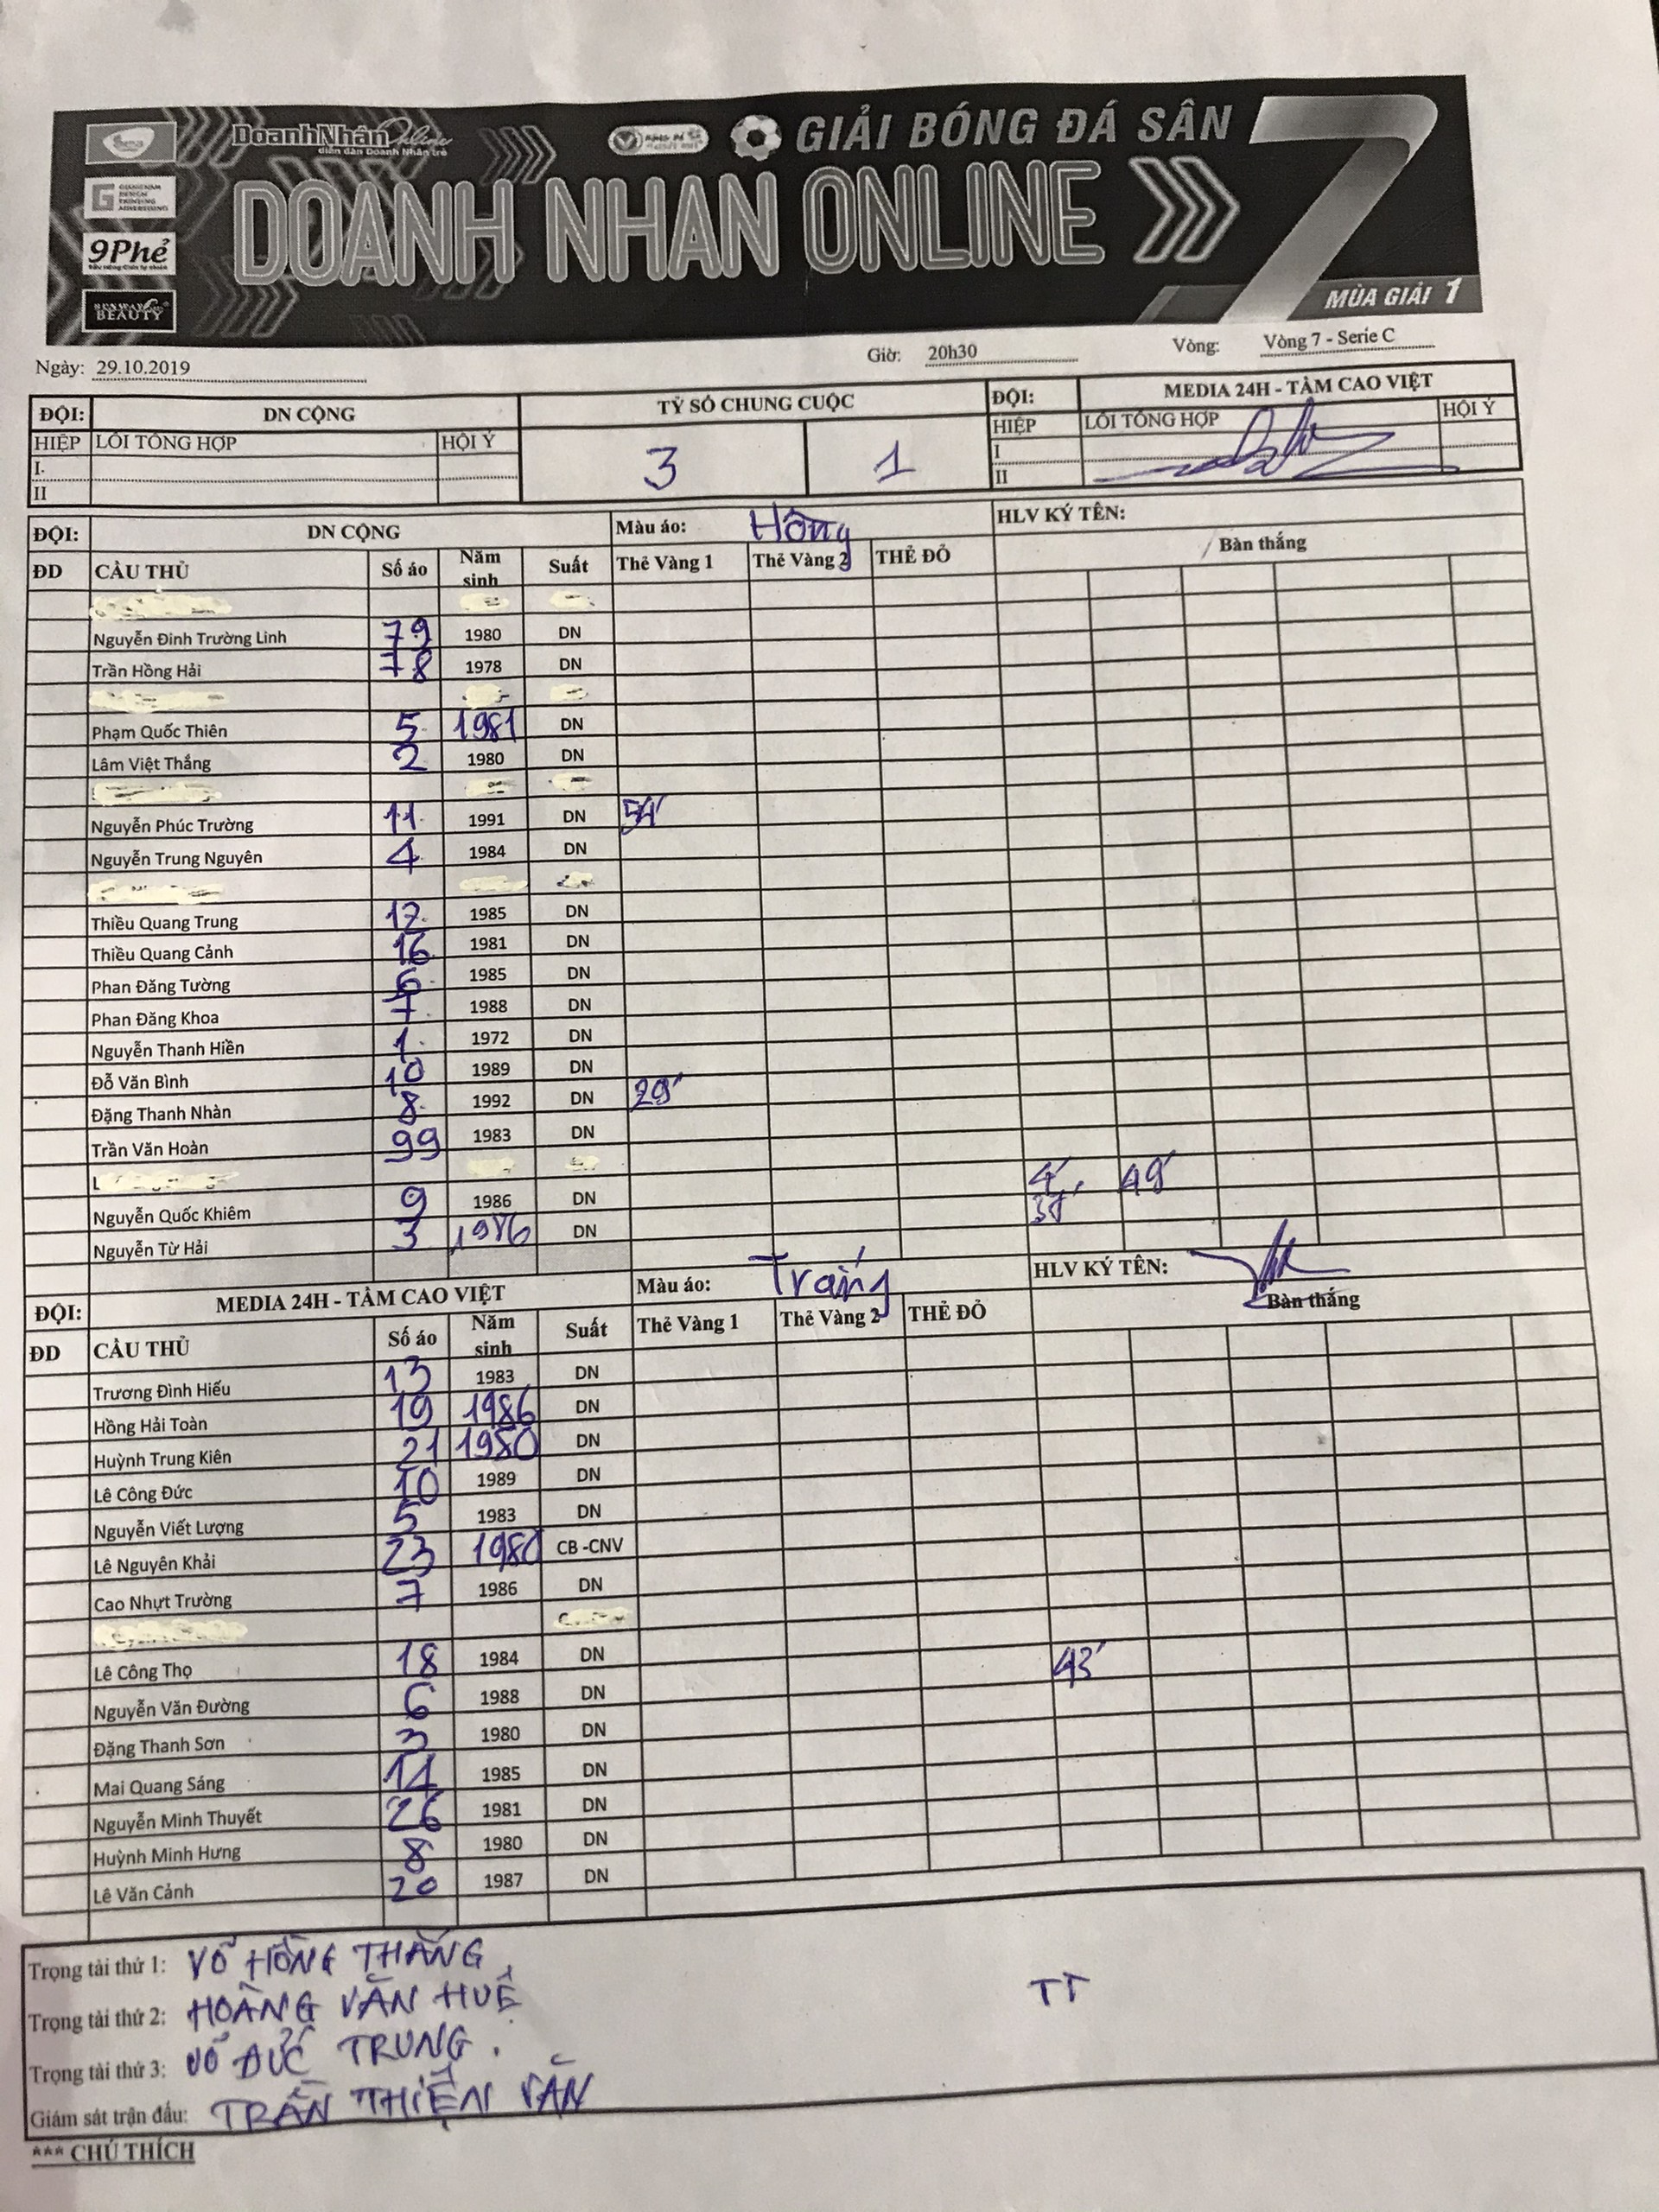 DoanhNhân Online
diễn đàn Doanh Nhân trẻ
GIẢI BÓNG ĐÁ SÂN 7
DOANH NHAN ONLINE
GIANGNAM
DESIGN
PRINTING
ADVERTISING
9Phẻ
BEAUTY
MÙA GIẢI 1
Ngày: 29.10.2019 Giờ: 20h30 Vòng: Vòng 7 - Serie C
ĐỘI: DN CỘNG TỶ SỐ CHUNG CUỘC ĐỘI: MEDIA 24H - TẦM CAO VIỆT
HIỆP LỖI TỔNG HỢP HỘI Ý 3 1 HIỆP LỖI TỔNG HỢP HỘI Ý
I. I
II II
ĐỘI: DN CỘNG Màu áo: Hồng HLV KÝ TÊN:
ĐD CẦU THỦ Số áo Năm sinh Suất Thẻ Vàng 1 Thẻ Vàng 2 THẺ ĐỎ Bàn thắng
Nguyễn Đinh Trường Linh 79 1980 DN
Trần Hồng Hải 78 1978 DN
Phạm Quốc Thiên 5 1981 DN
Lâm Việt Thắng 2 1980 DN
Nguyễn Phúc Trường 11 1991 DN 54'
Nguyễn Trung Nguyên 4 1984 DN
Thiều Quang Trung 12 1985 DN
Thiều Quang Cảnh 16 1981 DN
Phan Đăng Tường 6 1985 DN
Phan Đăng Khoa 7 1988 DN
Nguyễn Thanh Hiền 1 1972 DN
Đỗ Văn Bình 10 1989 DN
Đặng Thanh Nhàn 8 1992 DN 29'
Trần Văn Hoàn 99 1983 DN
L
Nguyễn Quốc Khiêm 9 1986 DN 4' 49'
Nguyễn Từ Hải 3 1986 DN
ĐỘI: MEDIA 24H - TẦM CAO VIỆT Màu áo: Trắng HLV KÝ TÊN:
ĐD CẦU THỦ Số áo Năm sinh Suất Thẻ Vàng 1 Thẻ Vàng 2 THẺ ĐỎ Bàn thắng
Trương Đình Hiếu 13 1983 DN
Hồng Hải Toàn 19 1986 DN
Huỳnh Trung Kiên 21 1980 DN
Lê Công Đức 10 1989 DN
Nguyễn Viết Lượng 5 1983 DN
Lê Nguyên Khải 23 1980 CB -CNV
Cao Nhựt Trường 7 1986 DN
Lê Công Thọ 18 1984 DN 43'
Nguyễn Văn Đường 6 1988 DN
Đặng Thanh Sơn 3 1980 DN
Mai Quang Sáng 14 1985 DN
Nguyễn Minh Thuyết 26 1981 DN
Huỳnh Minh Hưng 8 1980 DN
Lê Văn Cảnh 20 1987 DN
Trọng tài thứ 1: VÕ HỒNG THẮNG
Trọng tài thứ 2: HOÀNG VĂN HUÊ
TT
Trọng tài thứ 3: VÕ ĐỨC TRUNG.
Giám sát trận đấu: TRẦN THIỆN VĂN
*** CHÚ THÍCH